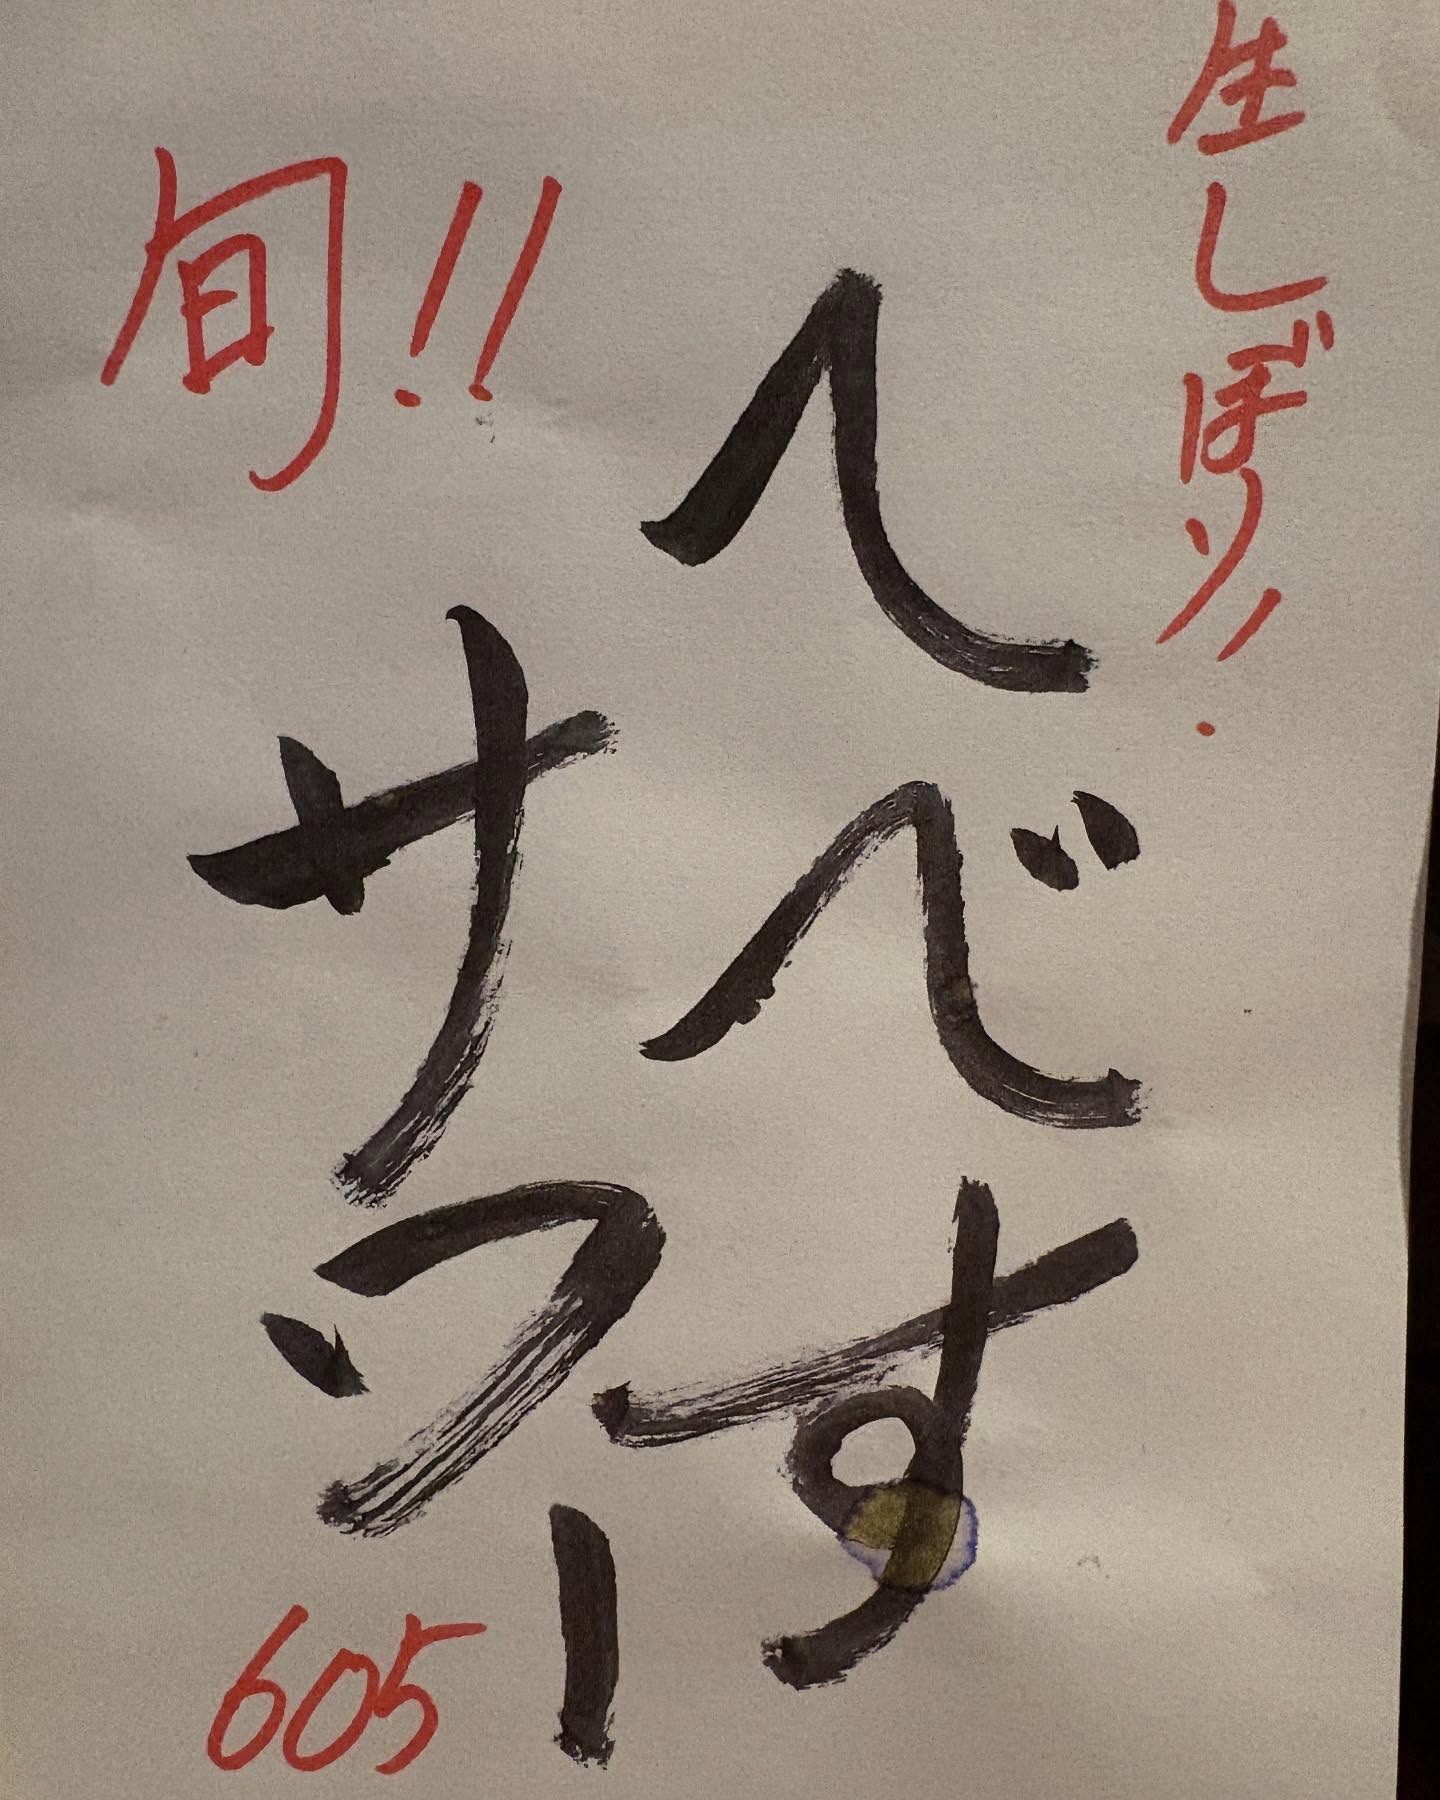 生しぼり!!
へべす
サワー
旬!!
605